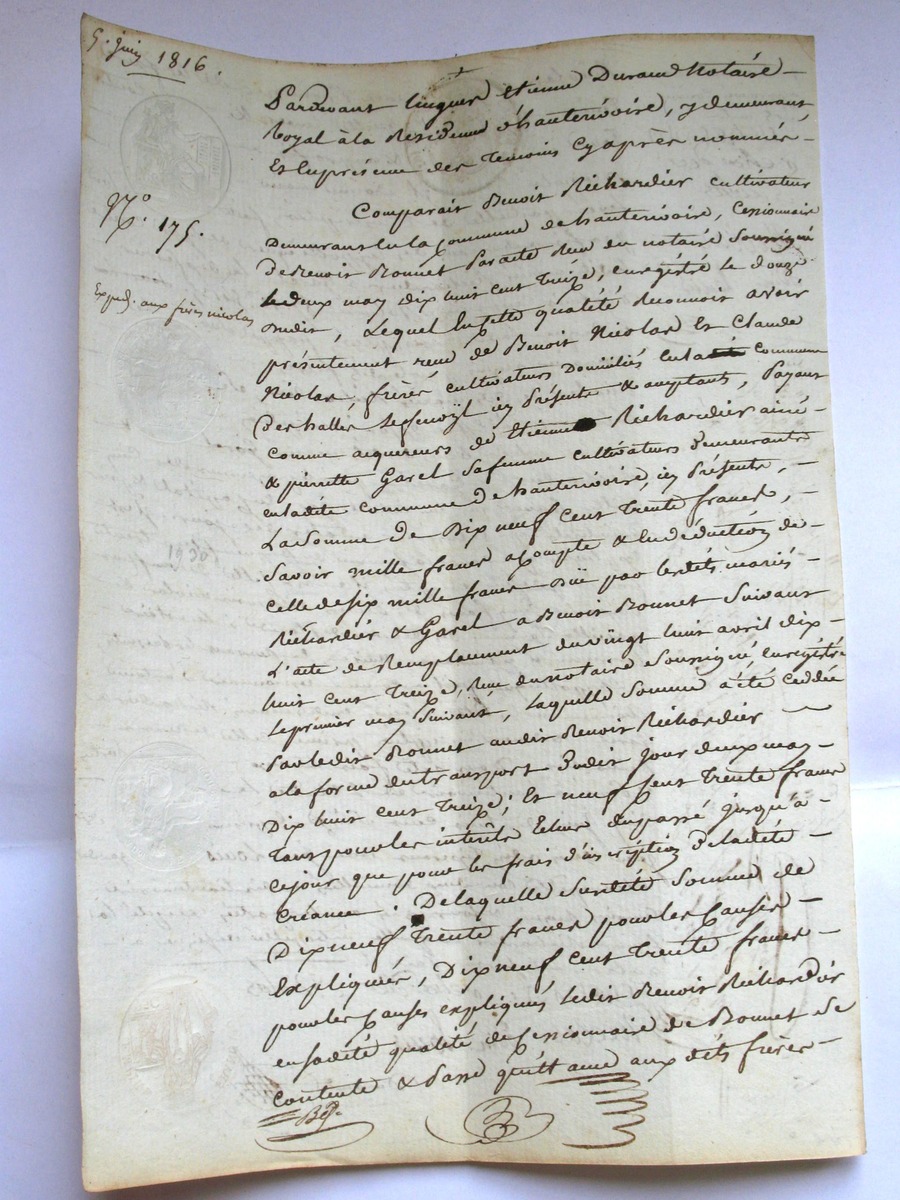 5. juin 1816.
Pardevant Etienne Durand Notaire
Royal à la Residence d'hauterivoire, y demeurant
Et en présence des Temoins cy après nommés
No. 175.
Comparait Benoit Richardier cultivateur
Demeurant en la Commune de hauterivoire, Cessionnaire
De Benoit Bonnet Par acte Reçu du notaire Soussigné
le deux may dix huit cent treize, enregistré le douze
Expéd. aux frères nicolas
dudit, Lequel en cette qualité Reconnoit avoir
présentement reçu de Benoit Nicolas Et Claude
Nicolas, frères cultivateurs Domiciliés en la commune
Des halles icy Présents & acceptants, Payant
comme acquereurs de Etienne Richardier ainé
& pierrette Garel sa femme cultivateurs demeurants
en ladite commune De hauterivoire, icy Présents,
La Somme de Dix neuf cent trente francs,
Savoir mille francs acompte & en déduction de
1930
celle de six mille francs Düe par lesdits mariés
Richardier & Garel a Benoit Bonnet Suivant
L'acte de Remplacement du vingt huit avril dix
huit cent treize, Reçu du notaire Soussigné, enregistré
le premier may Suivant, laquelle Somme a été ceddée
par ledit Bonnet audit Benoit Richardier
a la forme du transport dudit jour deux may
Dix huit cent treize; Et neuf cent trente francs
tant pour les interets échus du passé jusqu'a
ce jour que pour les frais d'inscription de ladite
créance. De laquelle Susdite Somme de
Dix neuf trente francs pour les causes
Expliquées, Dix neuf cent trente francs
pour les causes expliquées ledit Benoit Richardier
en sadite qualité de Cessionnaire de Bonnet Se
contente & Passe quittance aux dits frères